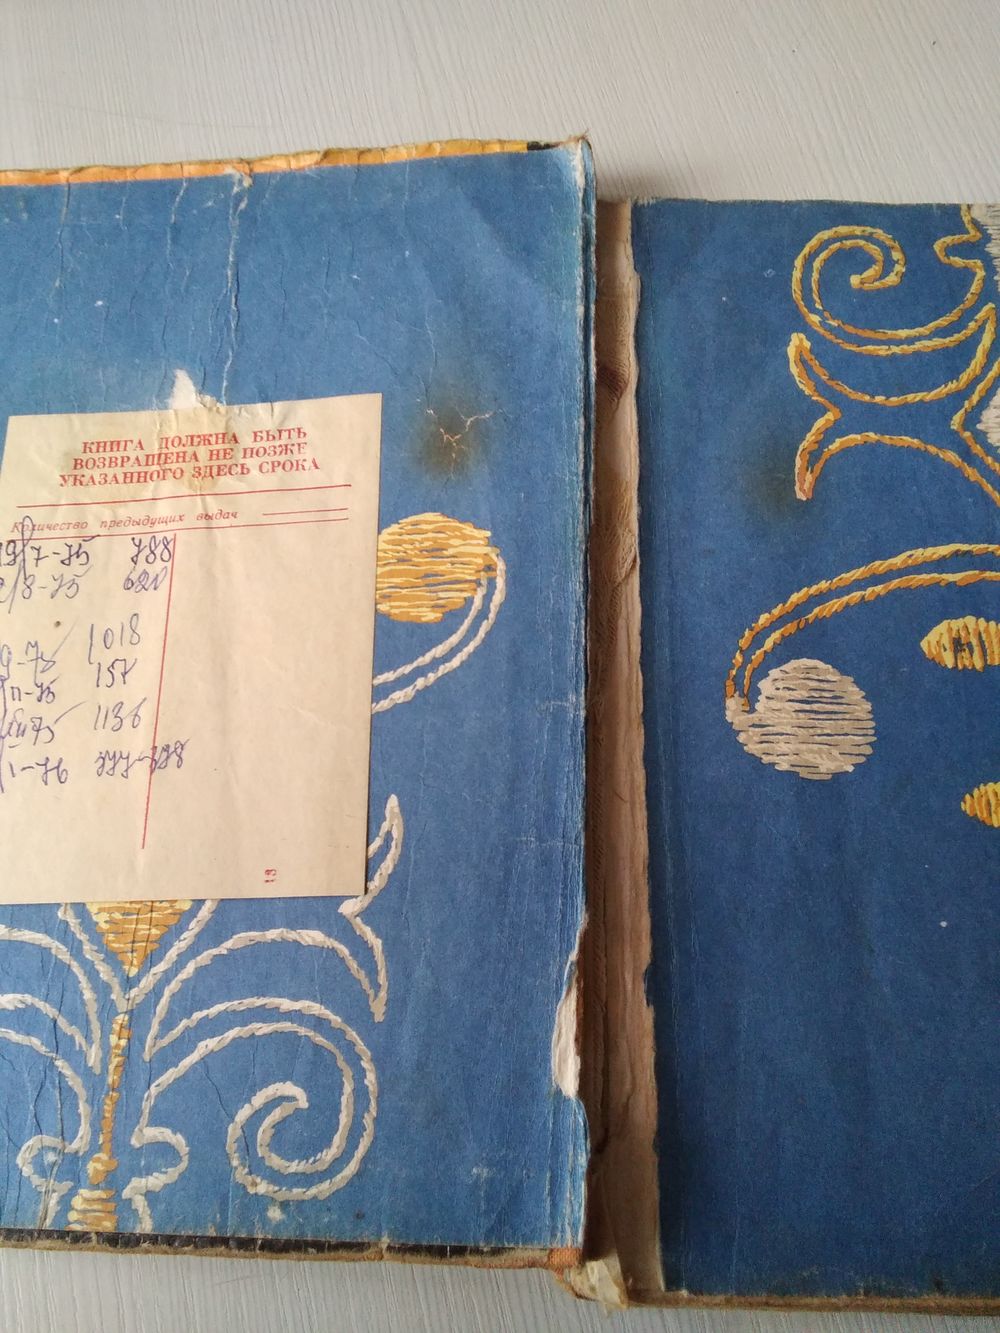 КНИГА ДОЛЖНА БЫТЬ
ВОЗВРАЩЕНА НЕ ПОЗЖЕ
УКАЗАННОГО ЗДЕСЬ СРОКА
Количество предыдущих выдач
19/7-75 788
2/8-75 620
1018
157
1136
1-76 377-378
13